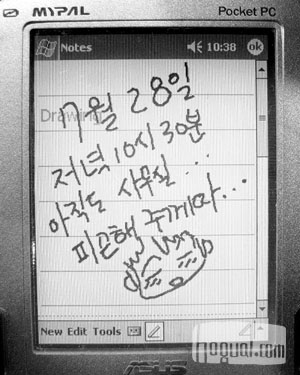 MYPAL Pocket PC
Notes 10:38 ok
Drawing
7월 28일
저녁 10시 30분
아직도 사무실...
피곤해 죽게따...
New Edit Tools
ASUS
nogual.com